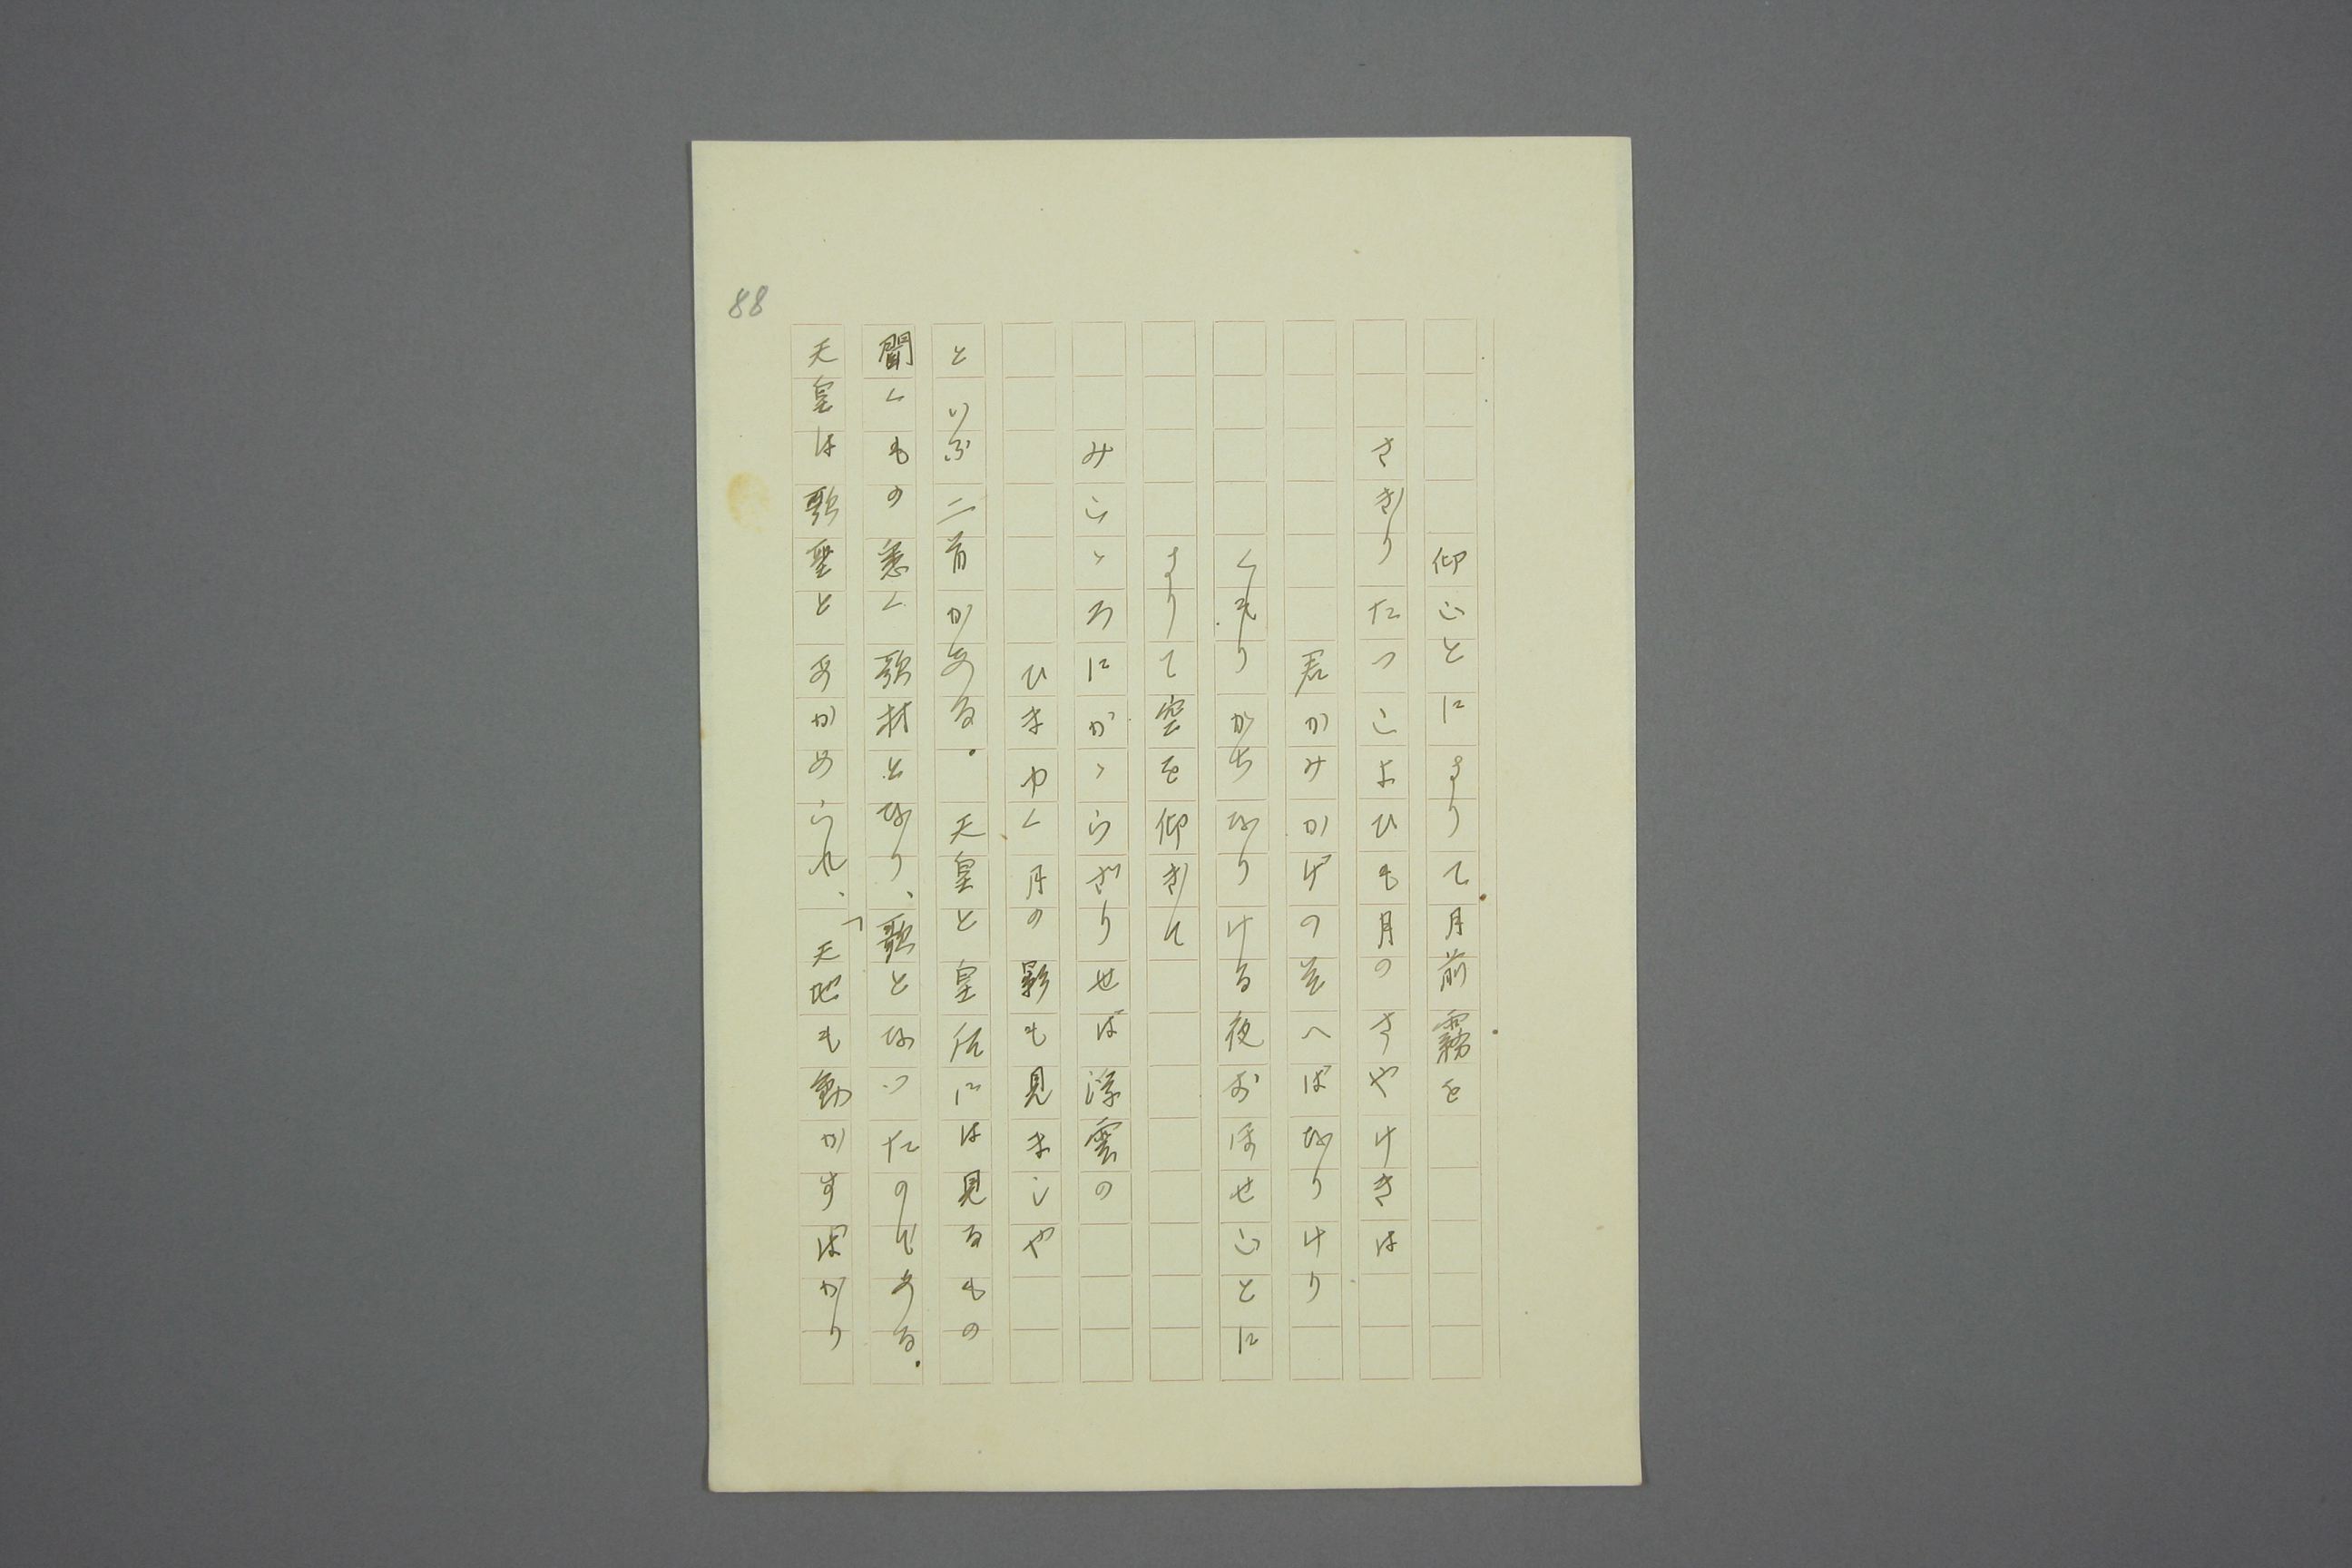 88
仰ごとによりて月前霧を
さぎりたつこよひも月のさやけきは
君がみかげの添へばなりけり
くもりがちなりける夜おほせごとに
よりて空を仰ぎて
みこゝろにかゝらざりせば浮雲の
ひまゆく月の影も見ましや
といふ二首がある。天皇と皇后には見るもの
聞くもの悉く歌材となり、歌となつたのである。
天皇は歌聖とあがめられ、「天地も動かすばかり